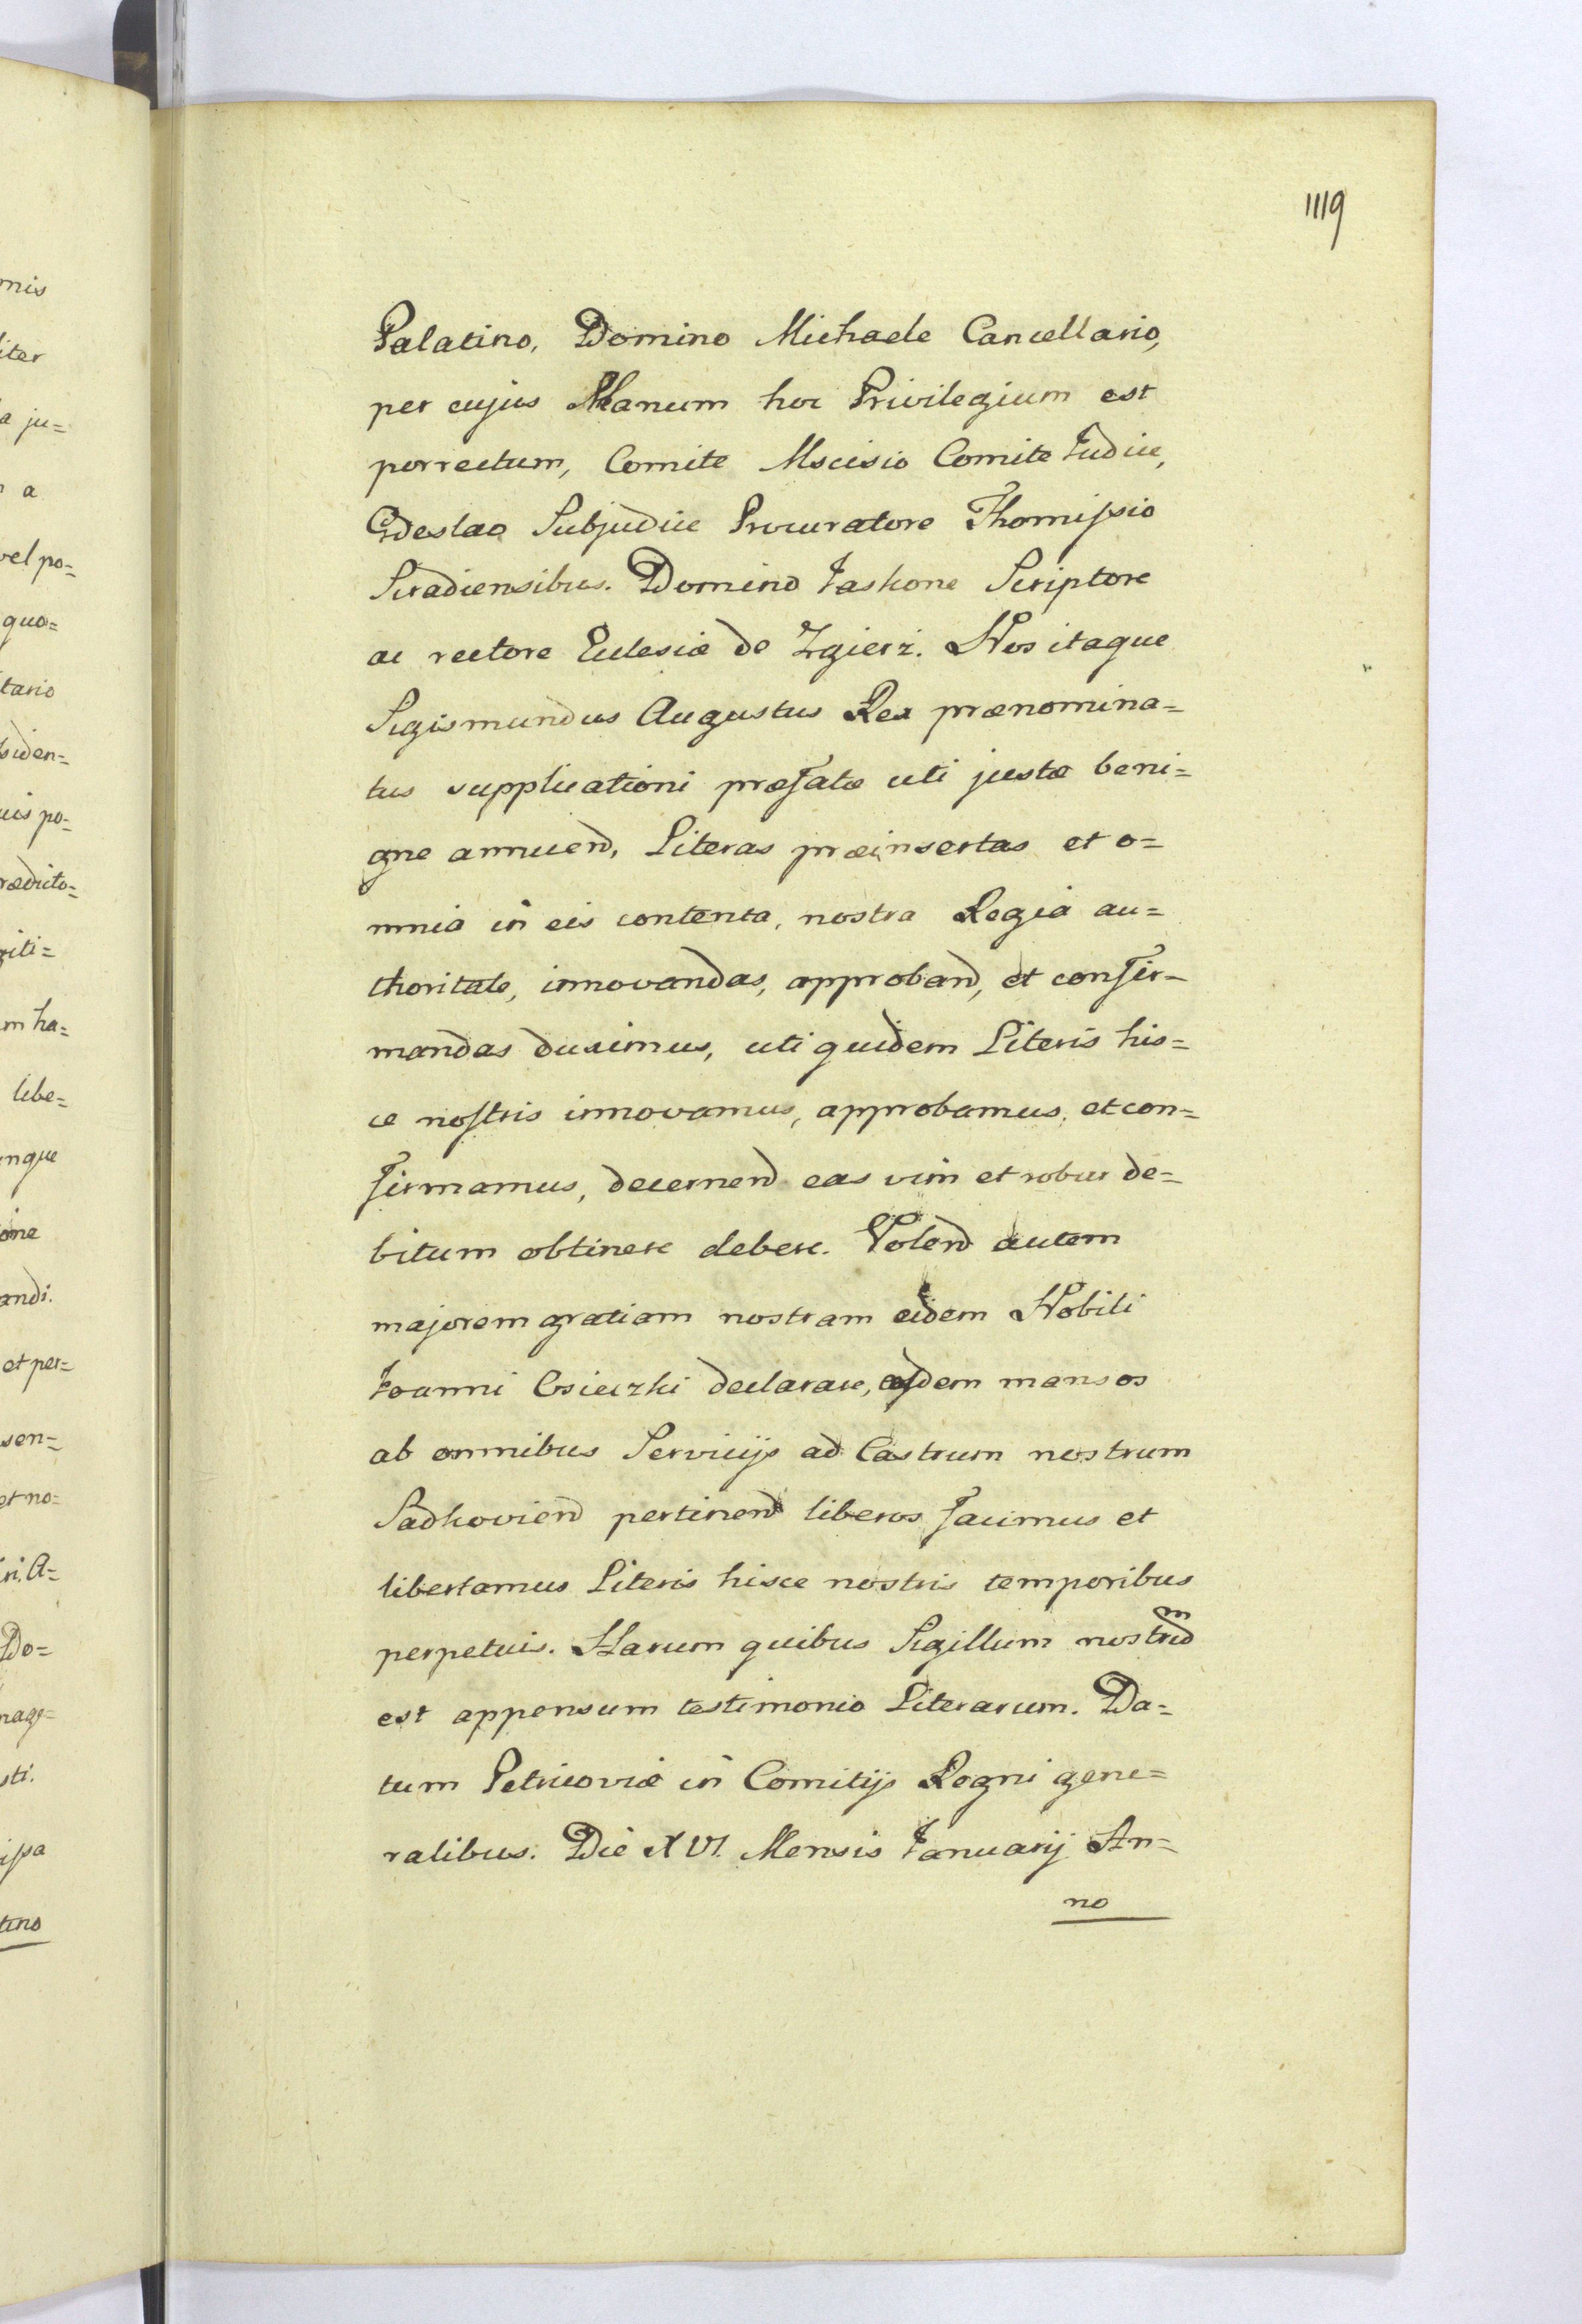 1119
Palatino, Domino Michaele Cancellario,
per cujus Manum hoc Privilegium est
porrectum, Comite Mscisio Comite Judice,
Gdeslao Subjudice Procuratore Thomissio
Siradiensibus. Domino Jaskone Scriptore
ac rectore Eclesiæ de Zgierz. Nos itaque
Sigismundus Augustus Rex prænomina=
tus supplicationi præfatæ uti justæ beni=
gne annuend, Literas præinsertas et o=
mnia in eis contenta, nostra Regia au=
thoritate, innovandas, approband, et confir=
mandas duximus, uti quidem Literis his=
ce nostris innovamus, approbamus, et con=
firmamus, decernend eas vim et robur de=
bitum obtinere debere. Volend autem
majorem gratiam nostram eidem Nobili
Joanni Csieczki declarare, eosdem mansos
ab omnibus Servicijs ad Castrum nostrum
Sadkoviend pertinend liberos facimus et
libertamus Literis hisce nostris temporibus
perpetuis. Harum quibus Sigillum nostrum
est appensum testimonio Literarum. Da=
tum Petricoviæ in Comitijs Regni gene=
ralibus. Die XVI. Mensis Januarij An=
no
mis
iter
a ju=
a
vel po=
quo=
tario
siden=
uis po=
rædicto=
giti=
m ha=
libe=
nque
one
andi.
et per=
sen=
et no=
ri, A=
Do=
nag=
sti.
issa
tino